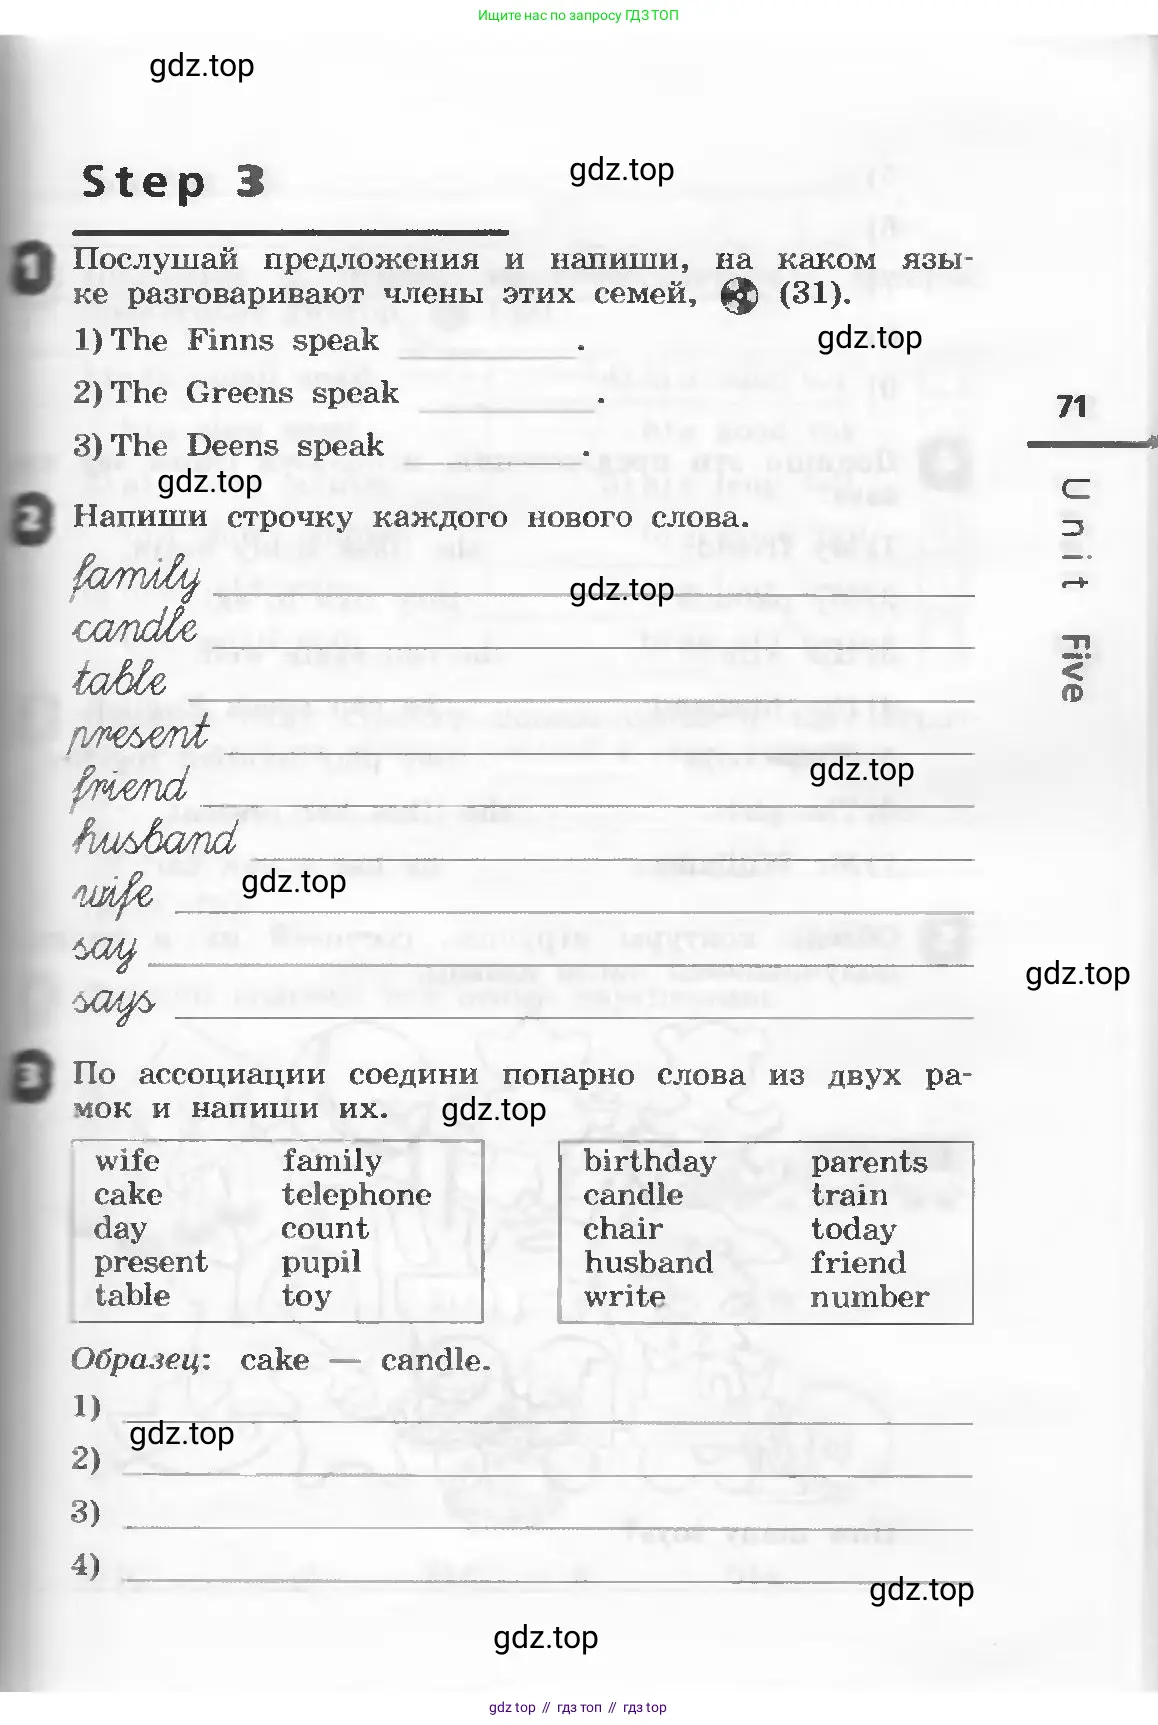 Ищите нас по запросу ГДЗ ТОП
gdz.top
Step 3
gdz.top
1 Послушай предложения и напиши, на каком язы-
ке разговаривают члены этих семей, (31).
1) The Finns speak .
gdz.top
2) The Greens speak .
71
3) The Deens speak .
gdz.top
Unit Five
2 Напиши строчку каждого нового слова.
family
gdz.top
candle
table
present
friend
gdz.top
husband
wife
gdz.top
say
gdz.top
says
3 По ассоциации соедини попарно слова из двух ра-
мок и напиши их.
gdz.top
wife family
cake telephone
day count
present pupil
table toy
birthday parents
candle train
chair today
husband friend
write number
Образец: cake — candle.
1)
gdz.top
2)
3)
4)
gdz.top
gdz.top
gdz top // гдз топ // гдз.top